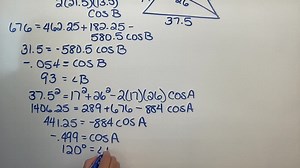 2(21.5)(13.5)
cos B
26
37.5
676 = 462.25 + 182.25 -
580.5 cos B
31.5 = -580.5 cos B
-.054 = cos B
93 = ∠B
37.5² = 17² + 26² - 2(17)(26) cos A
1406.25 = 289 + 676 - 884 cos A
441.25 = -884 cos A
-.499 = cos A
120° =